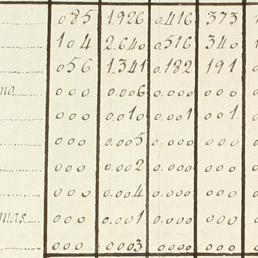 085 1.926 0.416 373
104 2.640 0.516 340
056 1.341 0.182 191
000 0.006 0.000 000
000 0.010 0.001 001
000 0.005 0.000 000
000 0.002 0.000 000
000 0.004 0.000 000
mas 000 0.001 0.000 000
000 0.003 0.000 000